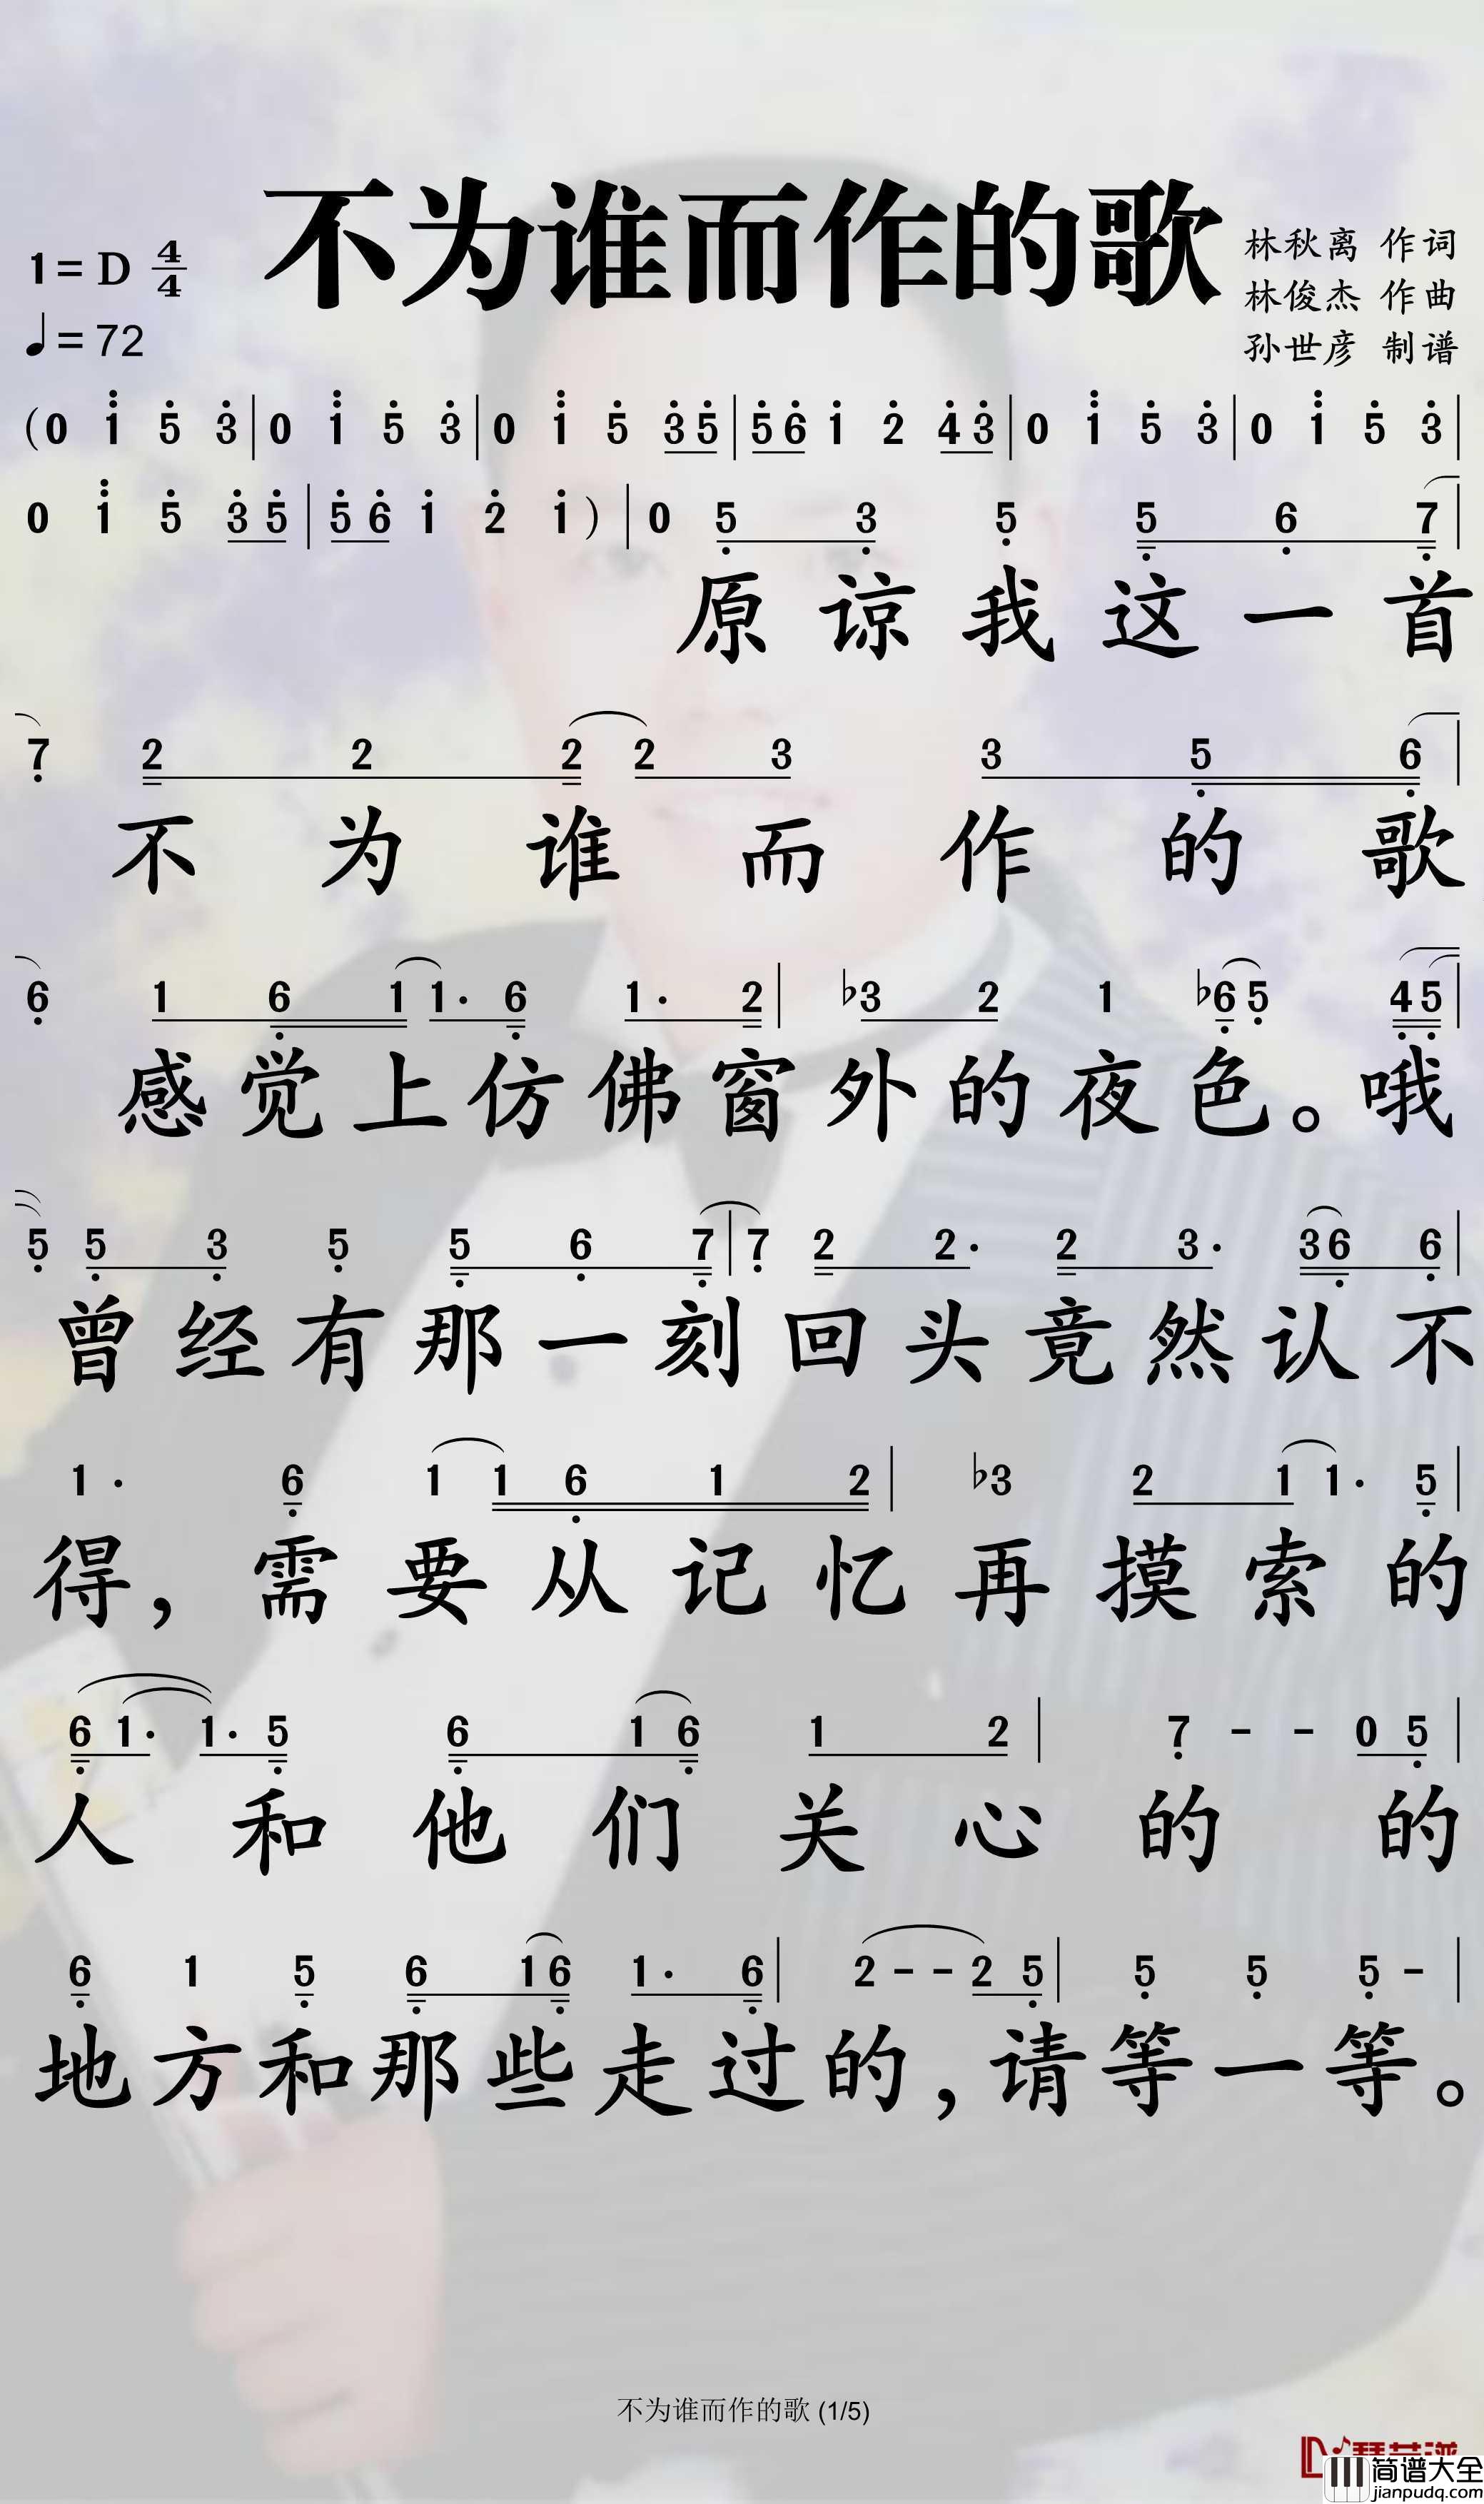 不为谁而作的歌
1=D 4/4
♩=72
林秋离 作词
林俊杰 作曲
孙世彦 制谱
(0 1 5 3|0 1 5 3|0 1 5 3 5|5 6 1 2 4 3|0 1 5 3|0 1 5 3|
0 1 5 3 5|5 6 1 2 1)|0 5 3 5 5 6 7|
原谅我这一首
7 2 2 2 2 3 3 5 6|
不为谁而作的歌
6 1 6 1 1· 6 1· 2|♭3 2 1 ♭6 5 4 5|
感觉上仿佛窗外的夜色。哦
5 5 3 5 5 6 7|7 2 2· 2 3· 3 6 6|
曾经有那一刻回头竟然认不
1· 6 1 1 6 1 2|♭3 2 1 1· 5|
得，需要从记忆再摸索的
6 1· 1· 5 6 1 6 1 2|7 - - 0 5|
人和他们关心的的
6 1 5 6 1 6 1· 6|2 - - 2 5|5 5 5 -|
地方和那些走过的，请等一等。
不为谁而作的歌 (1/5)
简谱大全
jianpudq.com